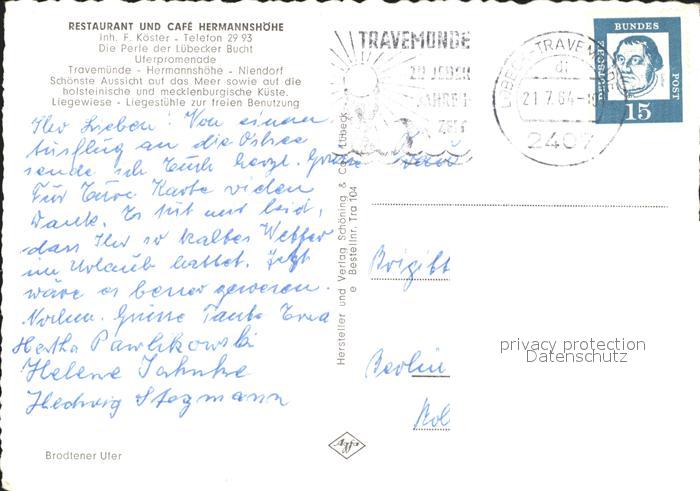 RESTAURANT UND CAFÉ HERMANNSHÖHE
Inh. F. Köster - Telefon 29 93
Die Perle der Lübecker Bucht
Uferpromenade
Travemünde - Hermannshöhe - Niendorf
Schönste Aussicht auf das Meer sowie auf die
holsteinische und mecklenburgische Küste.
Liegewiese - Liegestühle zur freien Benutzung
Ihr Lieben! Von einem
Ausflug an die Ostsee
sende ich Euch herzl. Grüße
Für Eure Karte vielen
Dank. Es tut mir leid,
dass Ihr so kaltes Wetter
im Urlaub hattet. Jetzt
wäre es besser gewesen.
Nochm. Grüsse Tante Erea
Hertha Pawlikowski
Helene Jahnke
Hedwig Stegmann
Brodtener Ufer
Hersteller und Verlag Schöning & Co., Lübeck
Bestellnr. Tra 104
TRAVEMÜNDE
ZU JEDER
JAHRES-
ZEIT
LÜBECK-TRAVEMÜNDE
di
21.7.64-
2407
DEUTSCHE
BUNDES
POST
15
Brigitt
Berlin
privacy protection
Datenschutz
Agfa